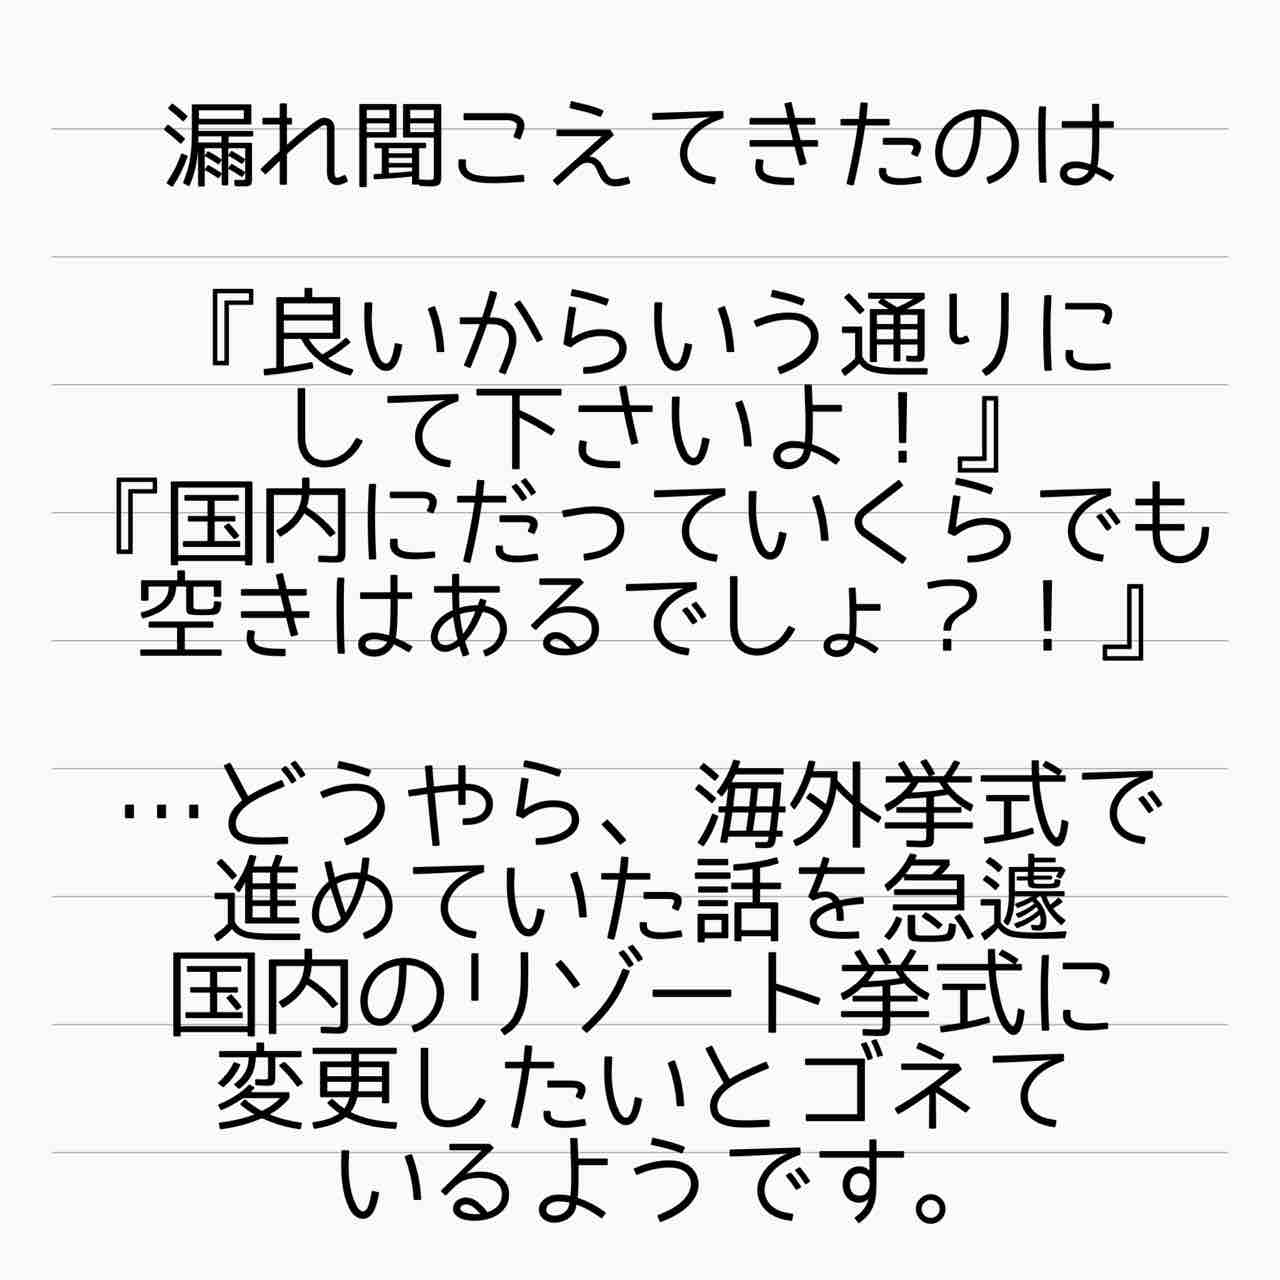 漏れ聞こえてきたのは
『良いからいう通りに
して下さいよ！』
『国内にだっていくらでも
空きはあるでしょ？！』
…どうやら、海外挙式で
進めていた話を急遽
国内のリゾート挙式に
変更したいとゴネて
いるようです。